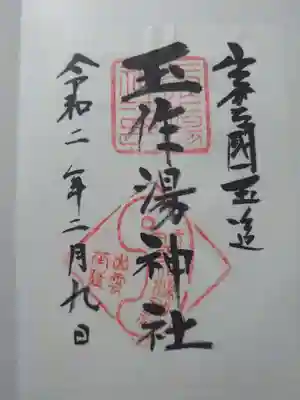 出雲國玉造
玉作湯神社
令和二年二月九日
出雲